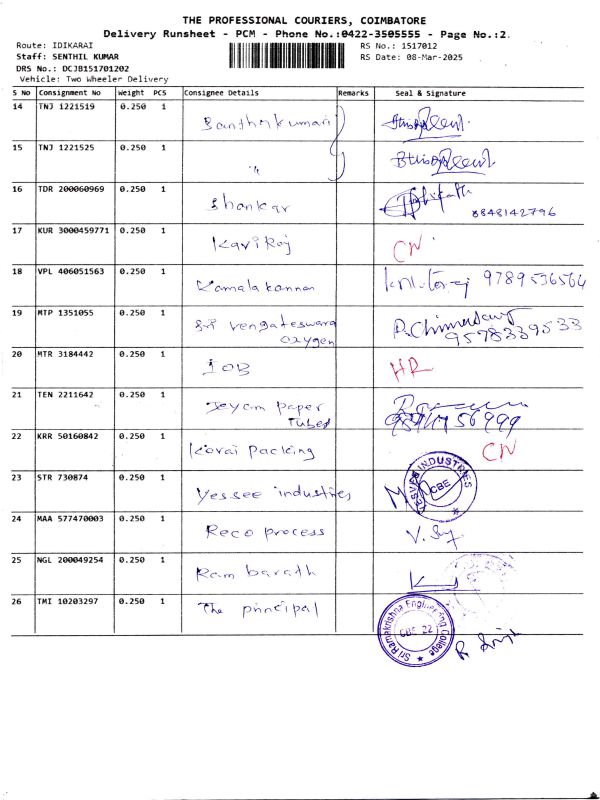 THE PROFESSIONAL COURIERS, COIMBATORE
Delivery Runsheet - PCM - Phone No.:0422-3505555 - Page No.:2.
Route: IDIKARAI RS No.: 1517012
Staff: SENTHIL KUMAR RS Date: 08-Mar-2025
DRS No.: DCJB151701202
Vehicle: Two Wheeler Delivery
S No Consignment No Weight PCS Consignee Details Remarks Seal & Signature
14 TNJ 1221519 0.250 1 Santhikumari
15 TNJ 1221525 0.250 1 "
16 TDR 200060969 0.250 1 Shankar 8848142796
17 KUR 3000459771 0.250 1 Kaviraj CN
18 VPL 406051563 0.250 1 Kamala kannan 9789536564
19 MTP 1351055 0.250 1 Sri vengateswara oxygen 9578339533
20 MTR 3184442 0.250 1 IOB HR
21 TEN 2211642 0.250 1 Jeyam paper Tubes
22 KRR 50160842 0.250 1 Kovai packing CN
23 STR 730874 0.250 1 Yessee industries INDUSTRIES CBE
24 MAA 577470003 0.250 1 Reco process
25 NGL 200049254 0.250 1 Ram barath
26 TMI 10203297 0.250 1 The principal Sri Ramakrishna Engineering College CBE 22